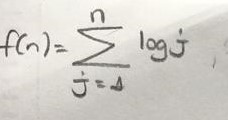 f(n) = ∑_{j=1}^{n} log j